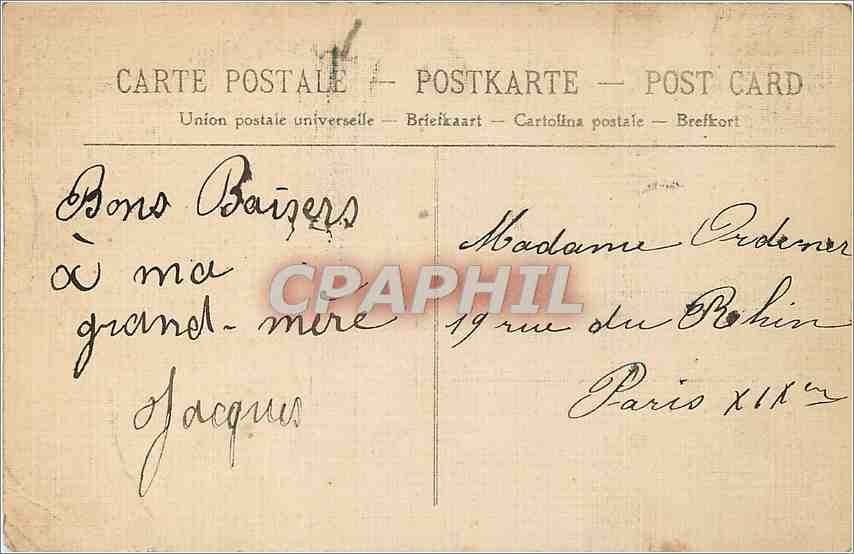 CARTE POSTALE — POSTKARTE — POST CARD
Union postale universelle — Briefkaart — Cartolina postale — Brefkort
Bons Baisers
à ma
grand-mère
Jacques
Madame Ordener
19 rue du Rhin
Paris XIXem
CPAPHIL